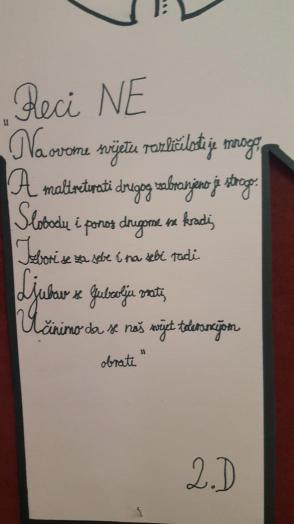 „Reci NE
Na ovome svijetu različitosti je mnogo,
A maltretirati drugog zabranjeno je strogo.
Slobodu i ponos drugome ne kradi,
Izbori se za sebe i na sebi radi.
Ljubav se ljubavlju vrati,
Učinimo da se naš svijet tolerancijom
obrati“
2.D